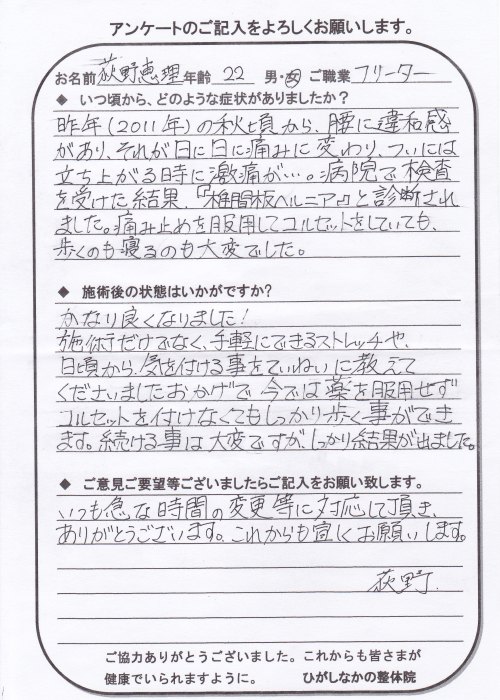 アンケートのご記入をよろしくお願いします。
お名前 荻野恵理 年齢 22 男・女 ご職業 フリーター
◆ いつ頃から、どのような症状がありましたか？
昨年(2011年)の秋頃から、腰に違和感
があり、それが日に日に痛みに変わり、ついには
立ち上がる時に激痛が…。病院で検査
を受けた結果、『椎間板ヘルニア』と診断され
ました。痛み止めを服用してコルセットをしていても、
歩くのも寝るのも大変でした。
◆ 施術後の状態はいかがですか？
かなり良くなりました！
施術だけでなく、手軽にできるストレッチや、
日頃から、気を付ける事をていねいに教えて
くださいましたおかげで、今では薬を服用せず
コルセットを付けなくてもしっかり歩く事ができ
ます。続ける事は大変ですが、しっかり結果が出ました。
◆ ご意見ご要望等ございましたらご記入をお願い致します。
いつも急な時間の変更等に対応して頂き、
ありがとうございます。これからも宜しくお願いします。
荻野.
ご協力ありがとうございました。これからも皆さまが
健康でいられますように。 ひがしなかの整体院